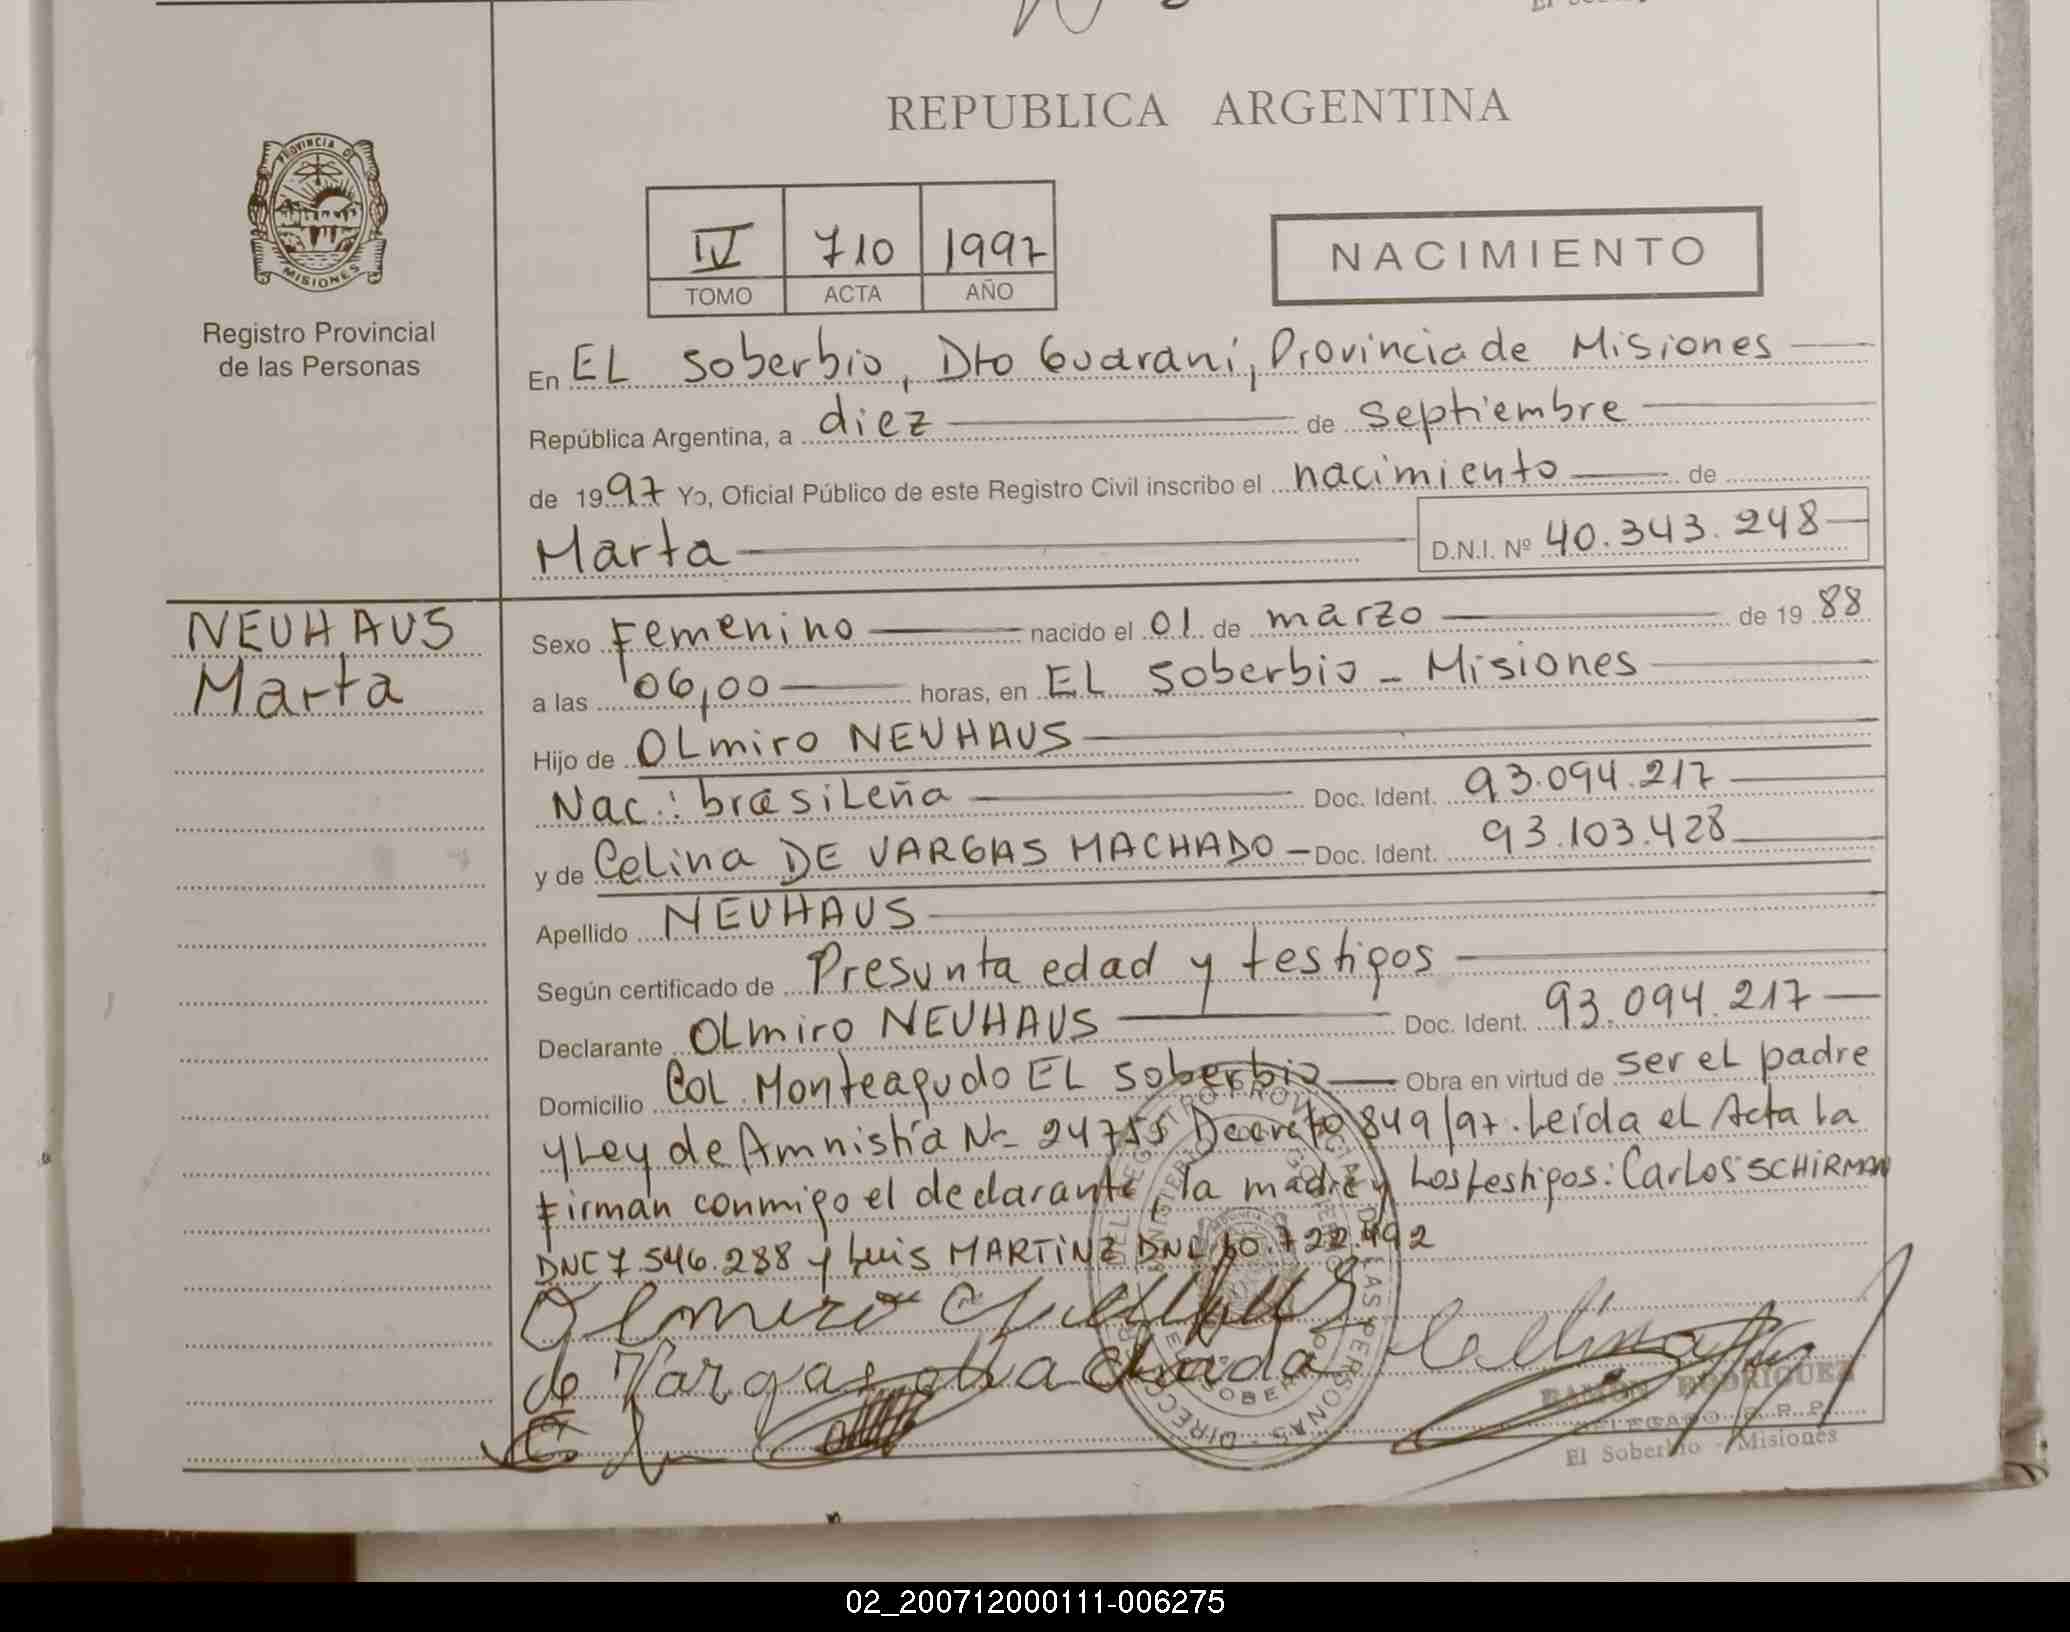 REPUBLICA ARGENTINA
PROVINCIA DE
MISIONES
Registro Provincial
de las Personas
IV 710 1997
TOMO ACTA AÑO
NACIMIENTO
En EL Soberbio, Dto Guaraní, Provincia de Misiones
República Argentina, a diez de Septiembre
de 1997 Yo, Oficial Público de este Registro Civil inscribo el nacimiento de
Marta D.N.I. Nº 40.343.248
NEUHAUS
Marta
Sexo Femenino nacido el 01 de marzo de 1988
a las 06,00 horas, en EL Soberbio - Misiones
Hijo de OLmiro NEUHAUS
Nac.: brasiLeña Doc. Ident. 93.094.217
y de CeLina DE VARGAS MACHADO - Doc. Ident. 93.103.428
Apellido NEUHAUS
Según certificado de Presunta edad y testigos
Declarante OLmiro NEUHAUS Doc. Ident. 93.094.217
Domicilio CoL. Monteagudo EL Soberbio Obra en virtud de ser eL padre
y Ley de Amnistía Nº 24755 Decreto 849/97. Leída eL Acta La
Firman conmigo el declarante, la madre y Los testigos: CarLos SCHIRMAN
DNI 7.546.288 y Luis MARTINZ DNI 10.722.492
Olmiro
de Vargas Machado Celina
RAMON RODRIGUEZ
DELEGADO R.P.P.
El Soberbio - Misiones
02_200712000111-006275